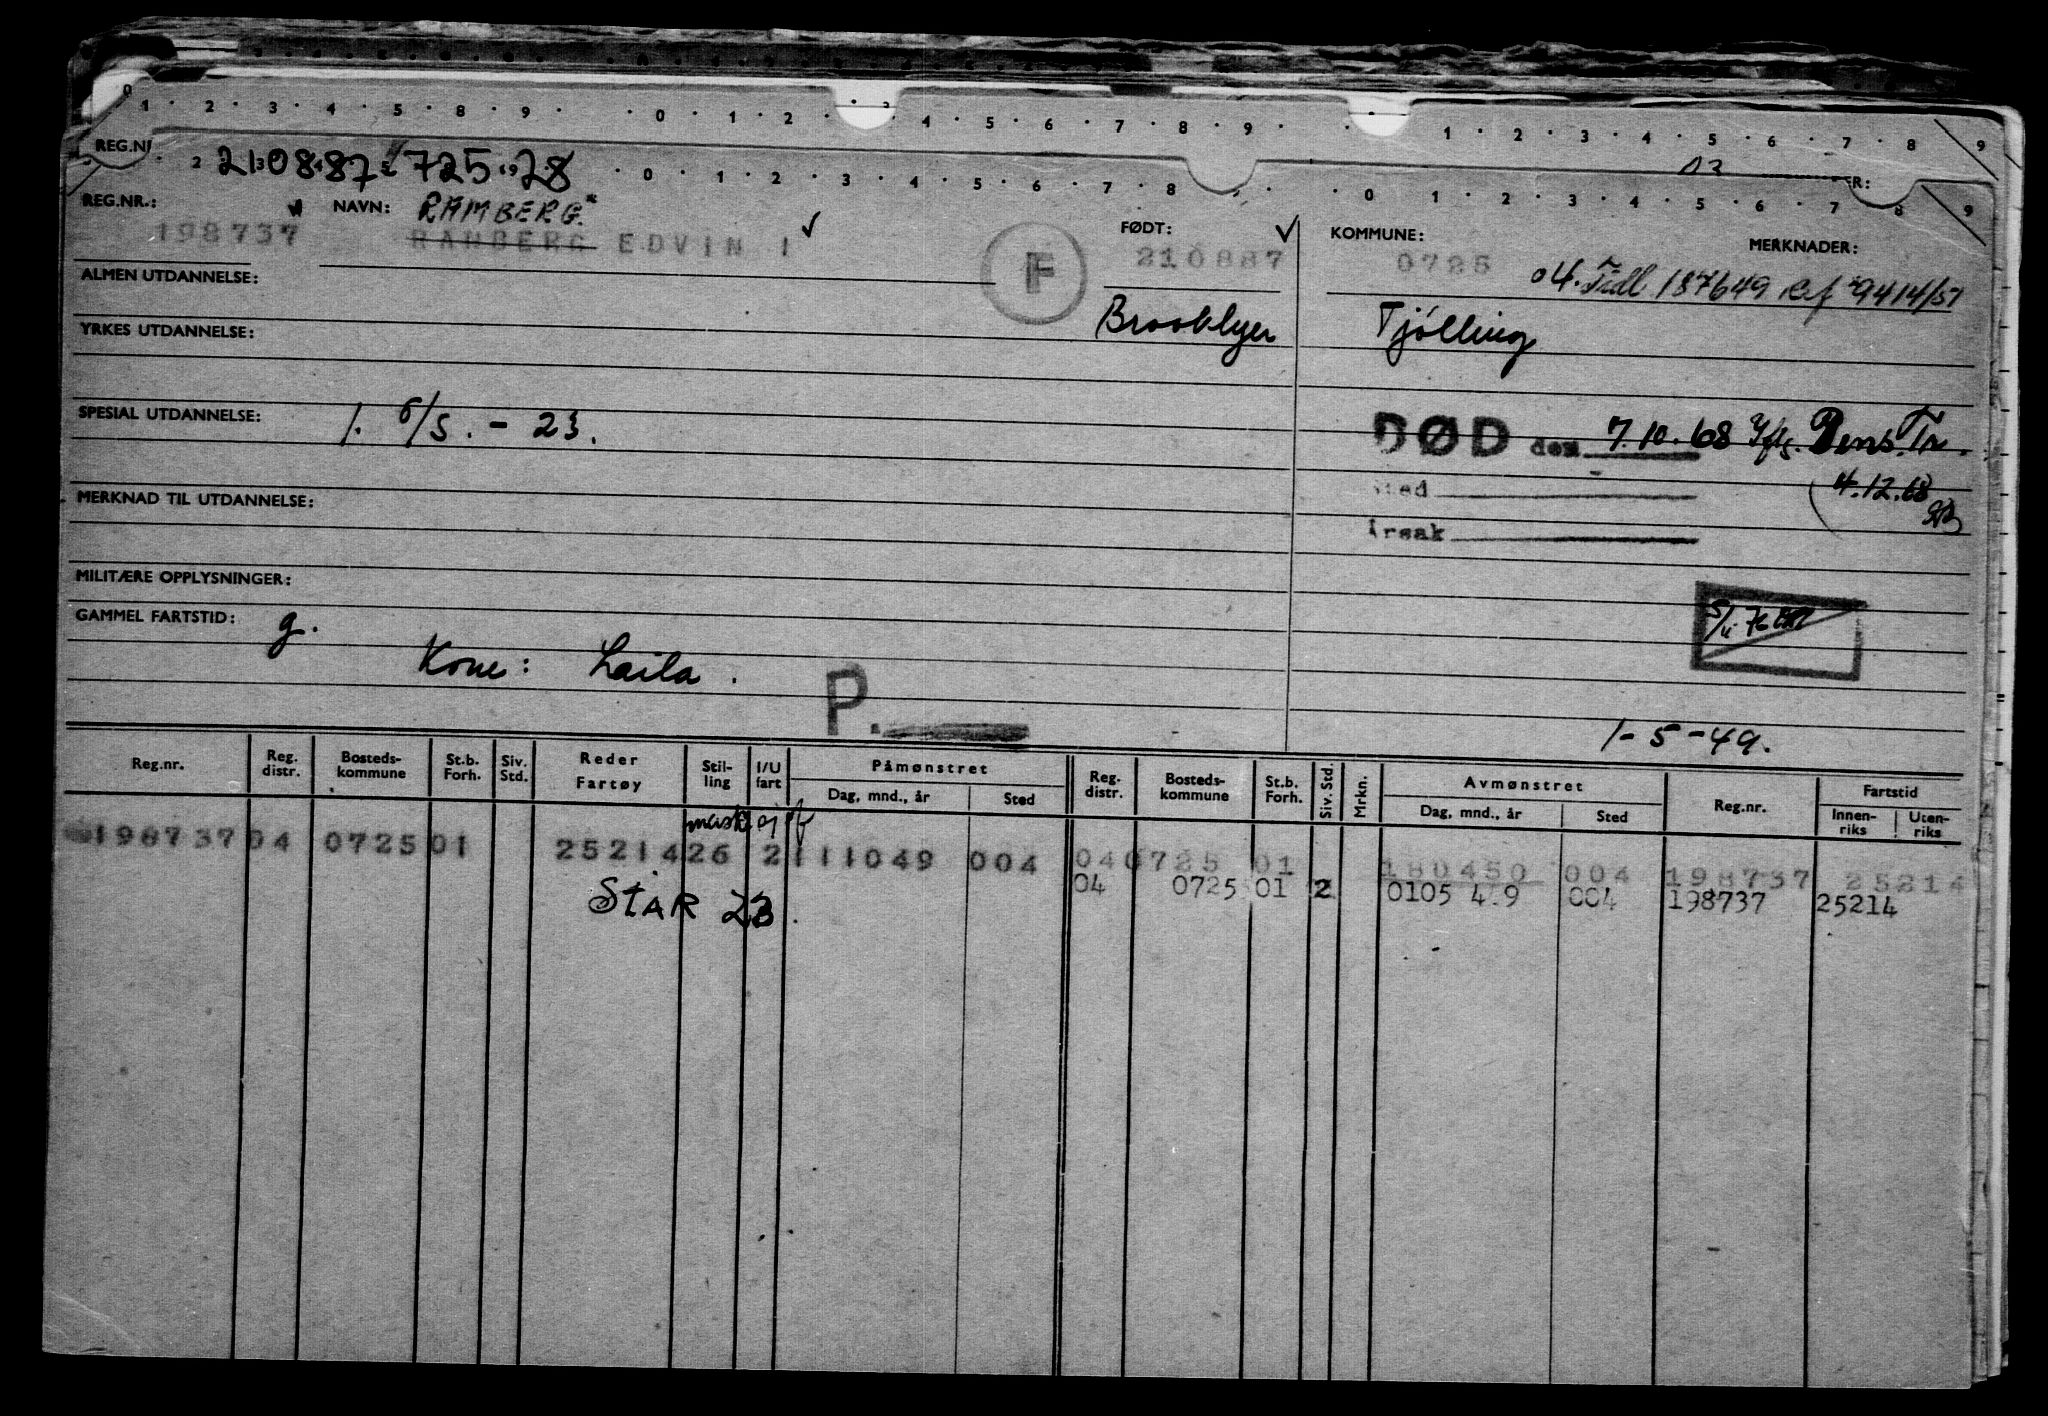 0 1 2 3 4 5 8 9 0 1 2 3 4 5 6 7 8 9 1 2 3 4 5 6 7 8 9
REG.N
2 0 1 2 3 4 5 6 7 8 0 1 2 3 4 5 6 7 8 9
210887 725 28
REG.NR.: NAVN: RAMBERG. FØDT: KOMMUNE: MERKNADER:
198737 EDVIN I F 210887 0725 04. Tidl 187649 9414/57
ALMEN UTDANNELSE:
YRKES UTDANNELSE: Tjölling
SPESIAL UTDANNELSE: 1. 6/5. - 23.
DØD den 7.10.68 Iflg. Pens.Tr.
Sted 4.12.68
MERKNAD TIL UTDANNELSE:
Årsak
MILITÆRE OPPLYSNINGER:
GAMMEL FARTSTID: g.
Kone: Laila.
P.
1-5-49.
Reg.nr. Reg. distr. Bosteds-kommune St.b. Forh. Siv. Std. Reder Fartøy Stil-ling I/U fart Påmønstret Dag, mnd., år Sted Reg. distr. Bosteds-kommune St.b. Forh. Siv. Std. Mrkn. Avmønstret Dag, mnd., år Sted Reg.nr. Fartstid Innen-riks Uten-riks
198737 04 0725 01 25214 26 2 111049 004 04 0725 01 180450 004 198737 25214
STAR 23. 04 0725 01 2 0105 4.9 004 198737 25214